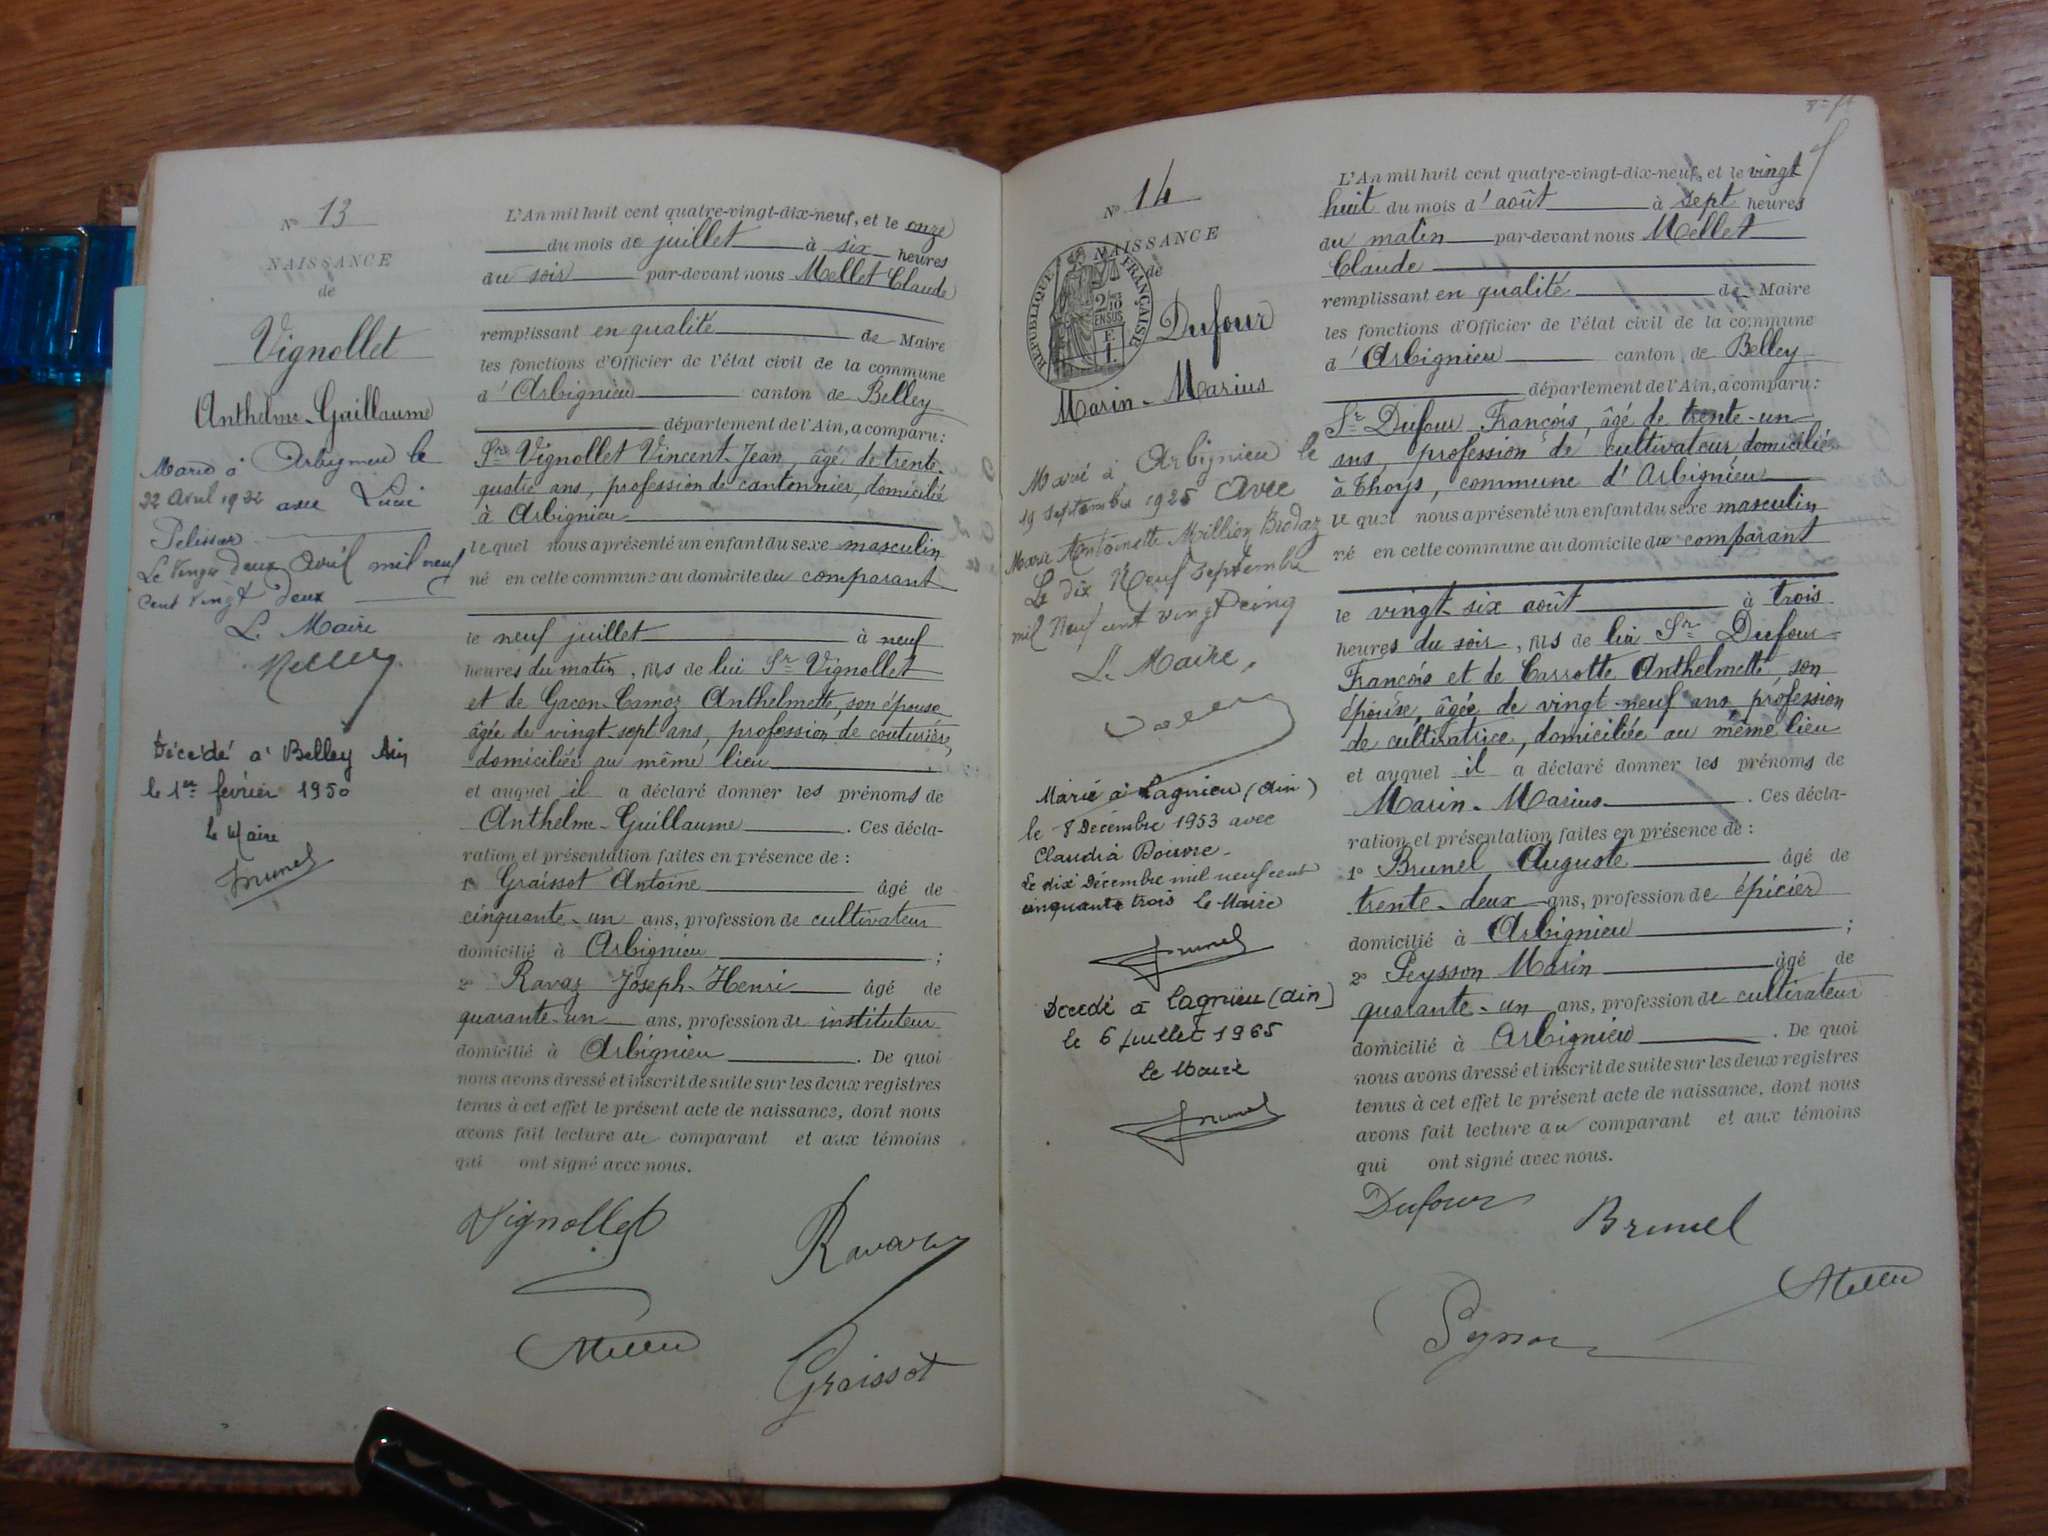 N° 13
NAISSANCE
de
Vignollet
Anthelme-Guillaume
Marié à Arbignieu le
22 Avril 1922 avec Lucie
Pelissar
Le vingt deux Avril mil neuf
cent vingt deux
Le Maire
Décédé à Belley Ain
le 1er février 1950
le Maire
Brunel
L'An mil huit cent quatre-vingt-dix-neuf, et le onze
du mois de juillet à six heures
du soir par-devant nous Mellet Claude
remplissant en qualité de Maire
les fonctions d'Officier de l'état civil de la commune
d'Arbignieu canton de Belley
département de l'Ain, a comparu:
Sr Vignollet Vincent-Jean, âgé de trente-
quatre ans, profession de cantonnier, domicilié
à Arbignieu
lequel nous a présenté un enfant du sexe masculin
né en cette commune au domicile du comparant
le neuf juillet à neuf
heures du matin, fils de lui Sr Vignollet
et de Gacon-Camoz Anthelmette, son épouse
âgée de vingt-sept ans, profession de couturière,
domiciliée au même lieu
et auquel il a déclaré donner les prénoms de
Anthelme-Guillaume. Ces décla-
ration et présentation faites en présence de :
1° Graissot Antoine âgé de
cinquante-un ans, profession de cultivateur
domicilié à Arbignieu ;
2° Ravaz Joseph-Henri âgé de
quarante-un ans, profession de instituteur
domicilié à Arbignieu. De quoi
nous avons dressé et inscrit de suite sur les deux registres
tenus à cet effet le présent acte de naissance, dont nous
avons fait lecture au comparant et aux témoins
qui ont signé avec nous.
Vignollet
Ravaz
Mellet
Graissot
N° 14
NAISSANCE
de
RÉPUBLIQUE FRANÇAISE
2/10 EN SUS
F. 1.
Dufour
Marin-Marius
Marié à Arbignieu le
19 septembre 1925 avec
Marie Antoinette Million Brodaz
Le dix Neuf septembre
mil neuf cent vingt cinq
Le Maire,
Marié à Lagnieu (Ain)
le 8 Décembre 1953 avec
Claudia
Le dix Décembre mil neuf cent
cinquante trois Le Maire
Brunel
Décédé à Lagnieu (Ain)
le 6 juillet 1965
Le Maire
Brunel
L'An mil huit cent quatre-vingt-dix-neuf, et le vingt
huit du mois d'août à sept heures
du matin par-devant nous Mellet
Claude
remplissant en qualité de Maire
les fonctions d'Officier de l'état civil de la commune
d'Arbignieu canton de Belley
département de l'Ain, a comparu:
Sr Dufour François, âgé de trente-un
ans, profession de cultivateur, domicilié
à Thoys, commune d'Arbignieu
lequel nous a présenté un enfant du sexe masculin
né en cette commune au domicile du comparant
le vingt-six août à trois
heures du soir, fils de lui Sr Dufour
François et de Carrotte Anthelmette, son
épouse, âgée de vingt-neuf ans, profession
de cultivatrice, domiciliée au même lieu
et auquel il a déclaré donner les prénoms de
Marin-Marius. Ces décla-
ration et présentation faites en présence de :
1° Brunel Auguste âgé de
trente-deux ans, profession de épicier
domicilié à Arbignieu ;
2° Peysson Marin âgé de
quarante-un ans, profession de cultivateur
domicilié à Arbignieu. De quoi
nous avons dressé et inscrit de suite sur les deux registres
tenus à cet effet le présent acte de naissance, dont nous
avons fait lecture au comparant et aux témoins
qui ont signé avec nous.
Dufour
Brunel
Mellet